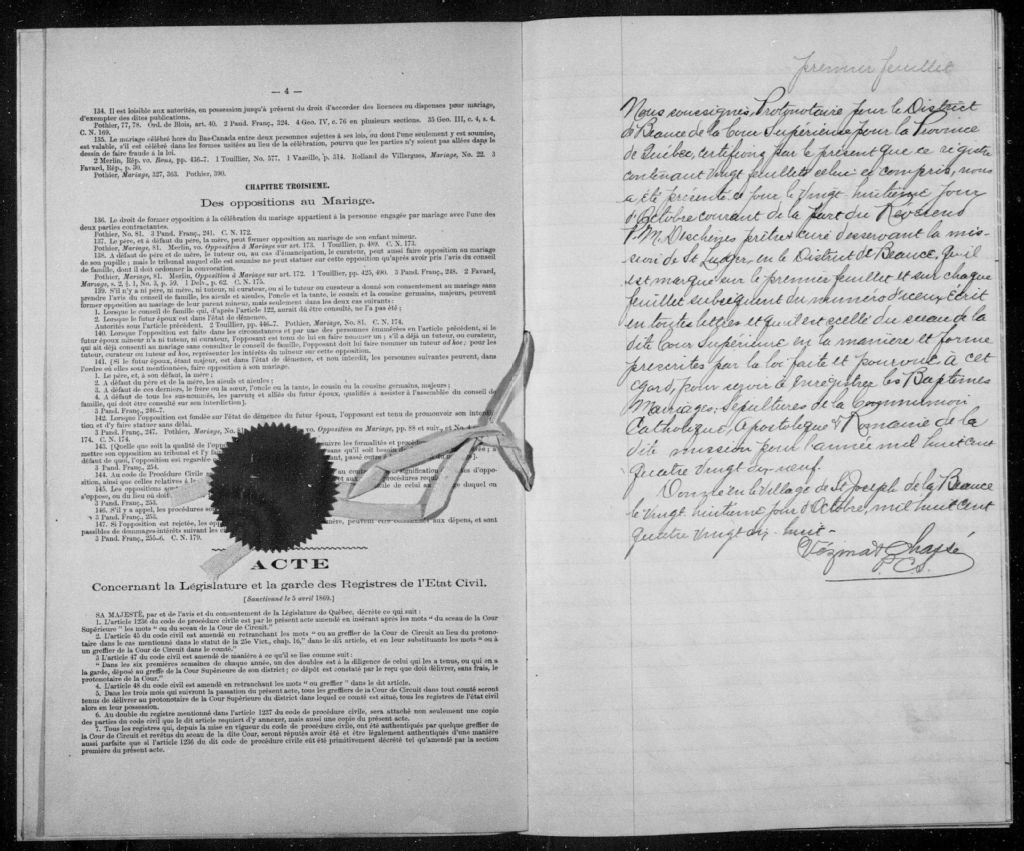 — 4 —
134. Il est loisible aux autorités, en possession jusqu'à présent du droit d'accorder des licences ou dispenses pour mariage,
d'exempter des dites publications.
Pothier, 77, 78. Ord. de Blois, art. 40. 2 Pand. Franç., 324. 4 Geo. IV, c. 76 en plusieurs sections. 35 Geo. III, c. 4, s. 4.
C. N. 169.
135. Le mariage célébré hors du Bas-Canada entre deux personnes sujettes à ses lois, ou dont l'une seulement y est soumise,
est valable, s'il est célébré dans les formes usitées au lieu de la célébration, pourvu que les parties n'y soient pas allées dans le
dessin de faire fraude à la loi.
2 Merlin, Rép. vo. Bans, pp. 436-7. 1 Touillier, No. 577. 1 Vazeille, p. 314. Rolland de Villargues, Mariage, No. 22. 3
Favard, Rép., p. 30.
Pothier, Mariage, 327, 363. Pothier, 390.
CHAPITRE TROISIEME.
Des oppositions au Mariage.
136. Le droit de former opposition à la célébration du mariage appartient à la personne engagée par mariage avec l'une des
deux parties contractantes.
Pothier, No. 81. 3 Pand. Franç., 241. C. N. 172.
137. Le père, et à défaut du père, la mère, peut former opposition au mariage de son enfant mineur.
Pothier, Mariage, 81. Merlin, vo. Opposition à Mariage sur art. 173. 1 Touillier, p. 489. C. N. 173.
138. A défaut de père et de mère, le tuteur ou, au cas d'émancipation, le curateur, peut aussi faire opposition au mariage
de son pupille ; mais le tribunal auquel elle est soumise ne peut statuer sur cette opposition qu'après avoir pris l'avis du conseil
de famille, dont il doit ordonner la convocation.
Pothier, Mariage, 81. Merlin, Opposition à Mariage sur art. 172. 1 Touillier, pp. 425, 490. 3 Pand. Franç., 248. 2 Favard,
Mariage, s. 2, § 1, No. 3, p. 59. 1 Delv., p. 62. C. N. 175.
139. S'il n'y a ni père, ni mère, ni tuteur, ni curateur, ou si le tuteur ou curateur a donné son consentement au mariage sans
prendre l'avis du conseil de famille, les aïeuls et aïeules, l'oncle et la tante, le cousin et la cousine germains, majeurs, peuvent
former opposition au mariage de leur parent mineur, mais seulement dans les deux cas suivants :
1. Lorsque le conseil de famille qui, d'après l'article 122, aurait dû être consulté, ne l'a pas été ;
2. Lorsque le futur époux est dans l'état de démence.
Autorités sous l'article précédent. 2 Touillier, pp. 446-7. Pothier, Mariage, No. 81. C. N. 174.
140. Lorsque l'opposition est faite dans les circonstances et par une des personnes énumérées en l'article précédent, si le
futur époux mineur n'a ni tuteur, ni curateur, l'opposant est tenu de lui en faire nommer un ; s'il a déjà un tuteur, ou curateur,
qui ait déjà consenti au mariage sans consulter le conseil de famille, l'opposant doit lui faire nommer un tuteur ad hoc ; pour les
tuteur, curateur ou tuteur ad hoc, représenter les intérêts du mineur sur cette opposition.
141. (Si le futur époux, étant majeur, est dans l'état de démence, et non interdit, les personnes suivantes peuvent, dans
l'ordre où elles sont mentionnées, faire opposition à son mariage.
1. Le père, et, à son défaut, la mère ;
2. A défaut du père et de la mère, les aïeuls et aïeules ;
3. A défaut de ces derniers, le frère ou la sœur, l'oncle ou la tante, le cousin ou la cousine germains, majeurs ;
4. A défaut de tous les sus-nommés, les parents et alliés du futur époux, qualifiés à assister à l'assemblée du conseil de
famille, qui doit être consulté sur son interdiction).
3 Pand. Franç., 246-7.
142. Lorsque l'opposition est fondée sur l'état de démence du futur époux, l'opposant est tenu de promouvoir son
et d'y faire statuer sans délai.
3 Pand. Franç., 247. Pothier, Mariage, No. vo. Opposition au Mariage, pp 88 et suiv., et No. 4
174. C. N. 174.
143. (Quelle que soit la qualité de
mettre son opposition au tribunal et
défaut de quoi, l'opposition est regardée
3 Pand. Franç., 254.
144. Au code de Procédure Civile
ainsi que celles relatives à
145. Les oppositions
s'oppose, ou du lieu où doit
1 Pand. Franç., 253.
146. S'il y a appel, les procédures
3 Pand. Franç., 253.
147. Si l'opposition est rejetée, les aux dépens, et sont
passibles de dommages-intérêts suivant les
3 Pand. Franç., 255-6. C. N. 179.
ACTE
Concernant la Législature et la garde des Registres de l'Etat Civil.
[Sanctionné le 5 avril 1869.]
SA MAJESTÉ, par et de l'avis et du consentement de la Législature de Québec, décrète ce qui suit :
1. L'article 1236 du code de procédure civile est par le présent acte amendé en insérant après les mots " du sceau de la Cour
Supérieure " les mots " ou du sceau de la Cour de Circuit."
2. L'article 45 du code civil est amendé en retranchant les mots " ou au greffier de la Cour de Circuit au lieu du protono-
taire dans le cas mentionné dans le statut de la 25e Vict., chap. 16," dans le dit article, et en leur substituants les mots " ou à
un greffier de la Cour de Circuit dans le comté."
3 L'article 47 du code civil est amendé de manière à ce qu'il se lise comme suit :
" Dans les six premières semaines de chaque année, un des doubles est à la diligence de celui qui les a tenus, ou qui en a
la garde, déposé au greffe de la Cour Supérieure de son district ; ce dépôt est constaté par le reçu que doit délivrer, sans frais, le
protonotaire de la Cour."
4. L'article 48 du code civil est amendé en retranchant les mots " ou greffier " dans le dit article.
5. Dans les trois mois qui suivront la passation du présent acte, tous les greffiers de la Cour de Circuit dans tout comté seront
tenus de délivrer au protonotaire de la Cour Supérieure du district dans lequel ce comté est situé, tous les registres de l'état civil
alors en leur possession.
6. Au double du registre mentionné dans l'article 1237 du code de procédure civile, sera attaché non seulement une copie
des parties du code civil que le dit article requiert d'y annexer, mais aussi une copie du présent acte.
7. Tous les registres qui, depuis la mise en vigueur du code de procédure civile, ont été authentiqués par quelque greffier de
la Cour de Circuit et revêtus du sceau de la dite Cour, seront réputés avoir été et être légalement authentiqués d'une manière
aussi parfaite que si l'article 1236 du dit code de procédure civile eût été primitivement décrété tel qu'amendé par la section
première du présent acte.
premier feuillet
Nous, soussignés, Protonotaire pour le District
de Beauce de la Cour Supérieure pour la Province
de Québec, certifions par le présent que ce régistre
contenant vingt feuillets celui-ci compris, nous
a été présenté ce jour le vingt-huitième jour
d'Octobre courant de la part du Révérend
P. M. Deschenes prêtre & curé desservant la mis-
sion de St Ludger, en le District de Beauce, qu'il
est marqué sur le premier feuillet et sur chaque
feuillet subséquent du numéro d'iceux écrit
en toutes lettres et qu'il est scellé du sceau de la
dite Cour Supérieure en la manière et forme
prescrites par la loi faite et pourvue à cet
égard, pour servir à enregistrer les Baptêmes
Mariages, Sépultures de la Communion
Catholique, Apostolique & Romaine de la
dite mission pour l'année mil huit cent
quatre vingt dix neuf.
Donné en le Village de St Joseph de la Beauce
le vingt huitième jour d'Octobre, mil huit cent
quatre vingt dix-huit.
Vézina & Chassé
P. C. S.